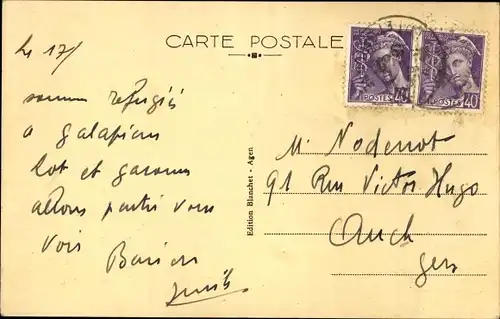 CARTE POSTALE
le 17/
sommes refugiés
a galapian
lot et garonne
allons partir vous
voir Baisers
POSTES 40
POSTES 40
Edition Blanchet - Agen
M. Noderrot
91 Rue Victor Hugo
Auch
Gers